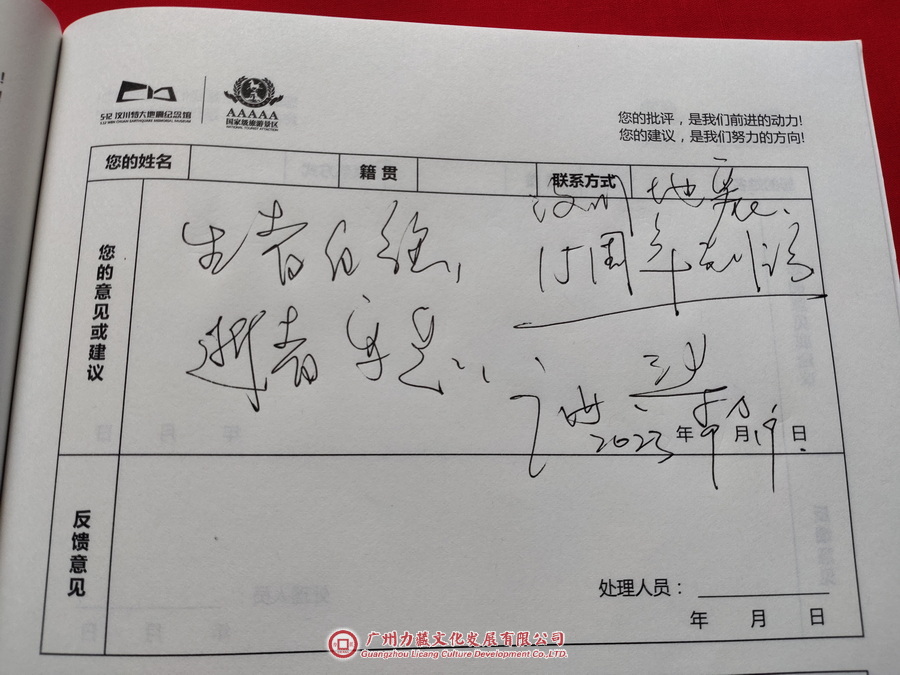 5·12 汶川特大地震纪念馆
5.12 WEN CHUAN EARTHQUAKE MEMORIAL MUSEUM
AAAAA
国家级旅游景区
NATIONAL TOURIST ATTRACTION
您的批评，是我们前进的动力!
您的建议，是我们努力的方向!
您的姓名
籍贯
联系方式
汶川地震、
15周年
您的意见或建议
生者自强，
逝者安息...
2023年 月 日
反馈意见
处理人员：
年 月 日
广州力藏文化发展有限公司
Guangzhou Licang Culture Development Co.,LTD.